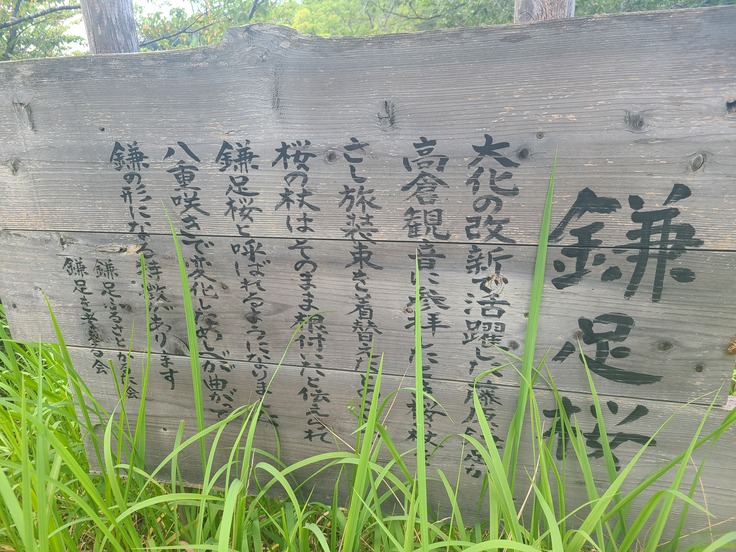 鎌足桜
大化の改新で活躍した藤原
高倉観音に参拝した
さし旅装束を着替えたと
桜の杖はそのまま根付いたと伝えられ
鎌足桜と呼ばれるようになりま
八重咲きで変化しためしべが曲がっ
鎌の形になる特徴があります
鎌足ふるさと 会
鎌足を 会